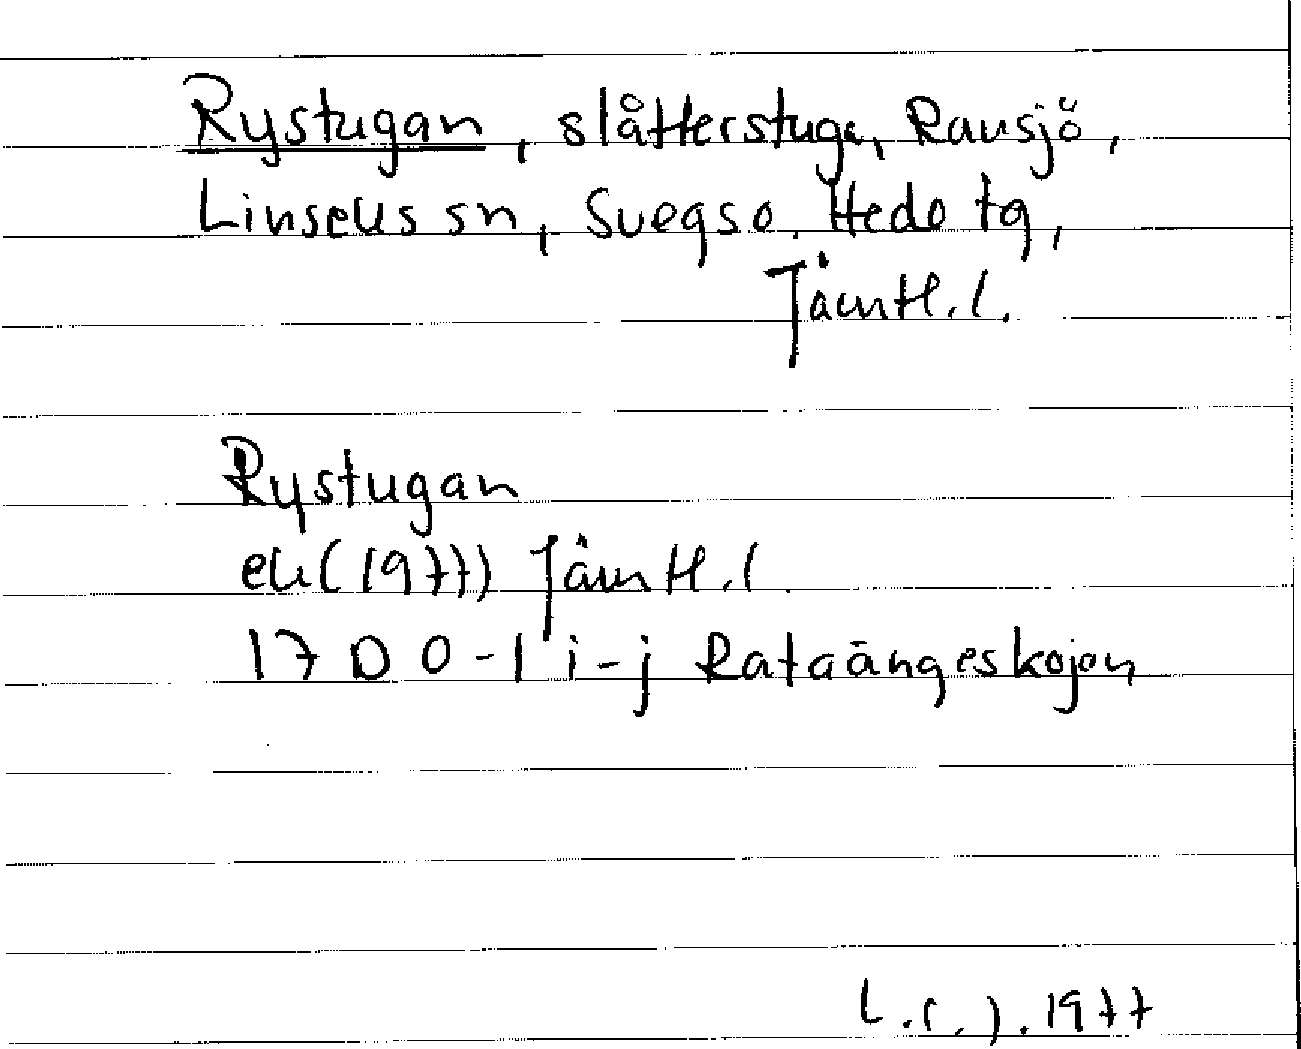 Rystugan, slåtterstuga, Ransjö,
Linsells sn, Svegs o. Hede tg,
Jämtl. l.
Rystugan
ek (1977) Jämtl. l
17 D 0-1 i-j Rataängeskojan
1977